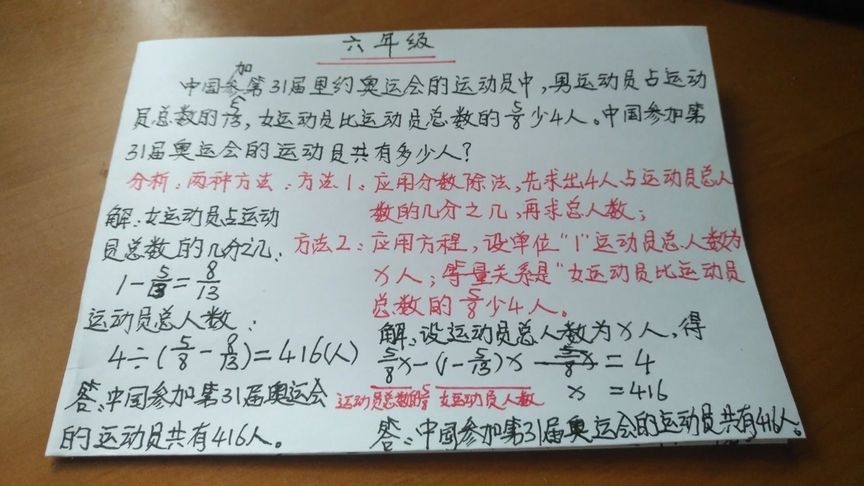 六年级
中国参加第31届里约奥运会的运动员中，男运动员占运动
员总数的5/13，女运动员比运动员总数的5/8少4人。中国参加第
31届奥运会的运动员共有多少人？
分析：两种方法：方法1：应用分数除法，先求出4人占运动员总人
数的几分之几，再求总人数；
方法2：应用方程，设单位“1”运动员总人数为
x人；等量关系是“女运动员比运动员
总数的5/8少4人。
解：女运动员占运动
员总数的几分之几：
1-5/13=8/13
运动员总人数：
4÷(5/8-8/13)=416(人)
答：中国参加第31届奥运会
的运动员共有416人。
解：设运动员总人数为x人，得
5/8x-(1-5/13)x=4
运动员总数的5/8 女运动员人数
x=416
答：中国参加第31届奥运会的运动员共有416人。